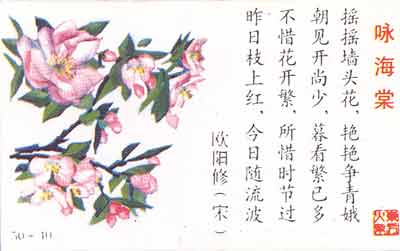 咏海棠
摇摇墙头花，艳艳争青娥
朝见开尚少，暮看繁已多
不惜花开繁，所惜时节过
昨日枝上红，今日随流波
欧阳修（宋）
50-10